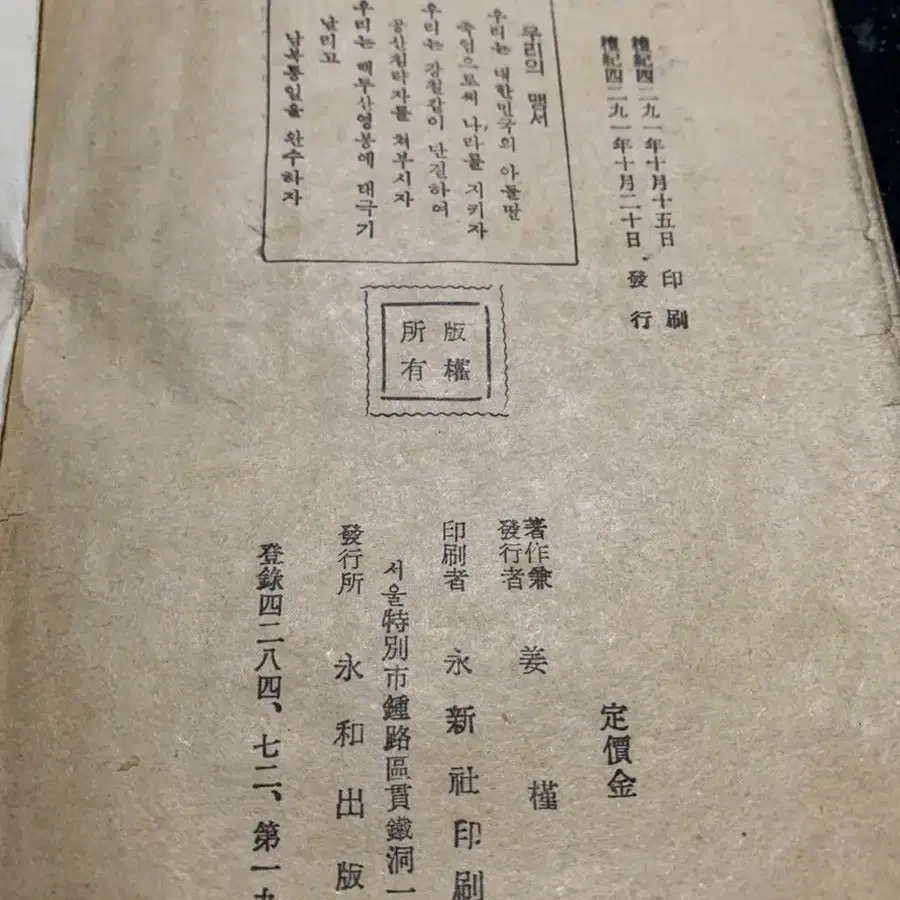 檀紀四二九一年十月十五日 印刷
檀紀四二九一年十月二十日 發行
우리의 맹서
우리는 대한민국의 아들딸
죽엄으로써 나라를 지키자
우리는 강철같이 단결하여
공산침략자를 쳐부시자
우리는 백두산영봉에 태극기
날리고
남북통일을 완수하자
版權
所有
定價金
著作兼
發行者 姜槿
印刷者 永新社印刷
서울特別市鍾路區貫鐵洞一
發行所 永和出版
登錄四二八四、七二、第一九